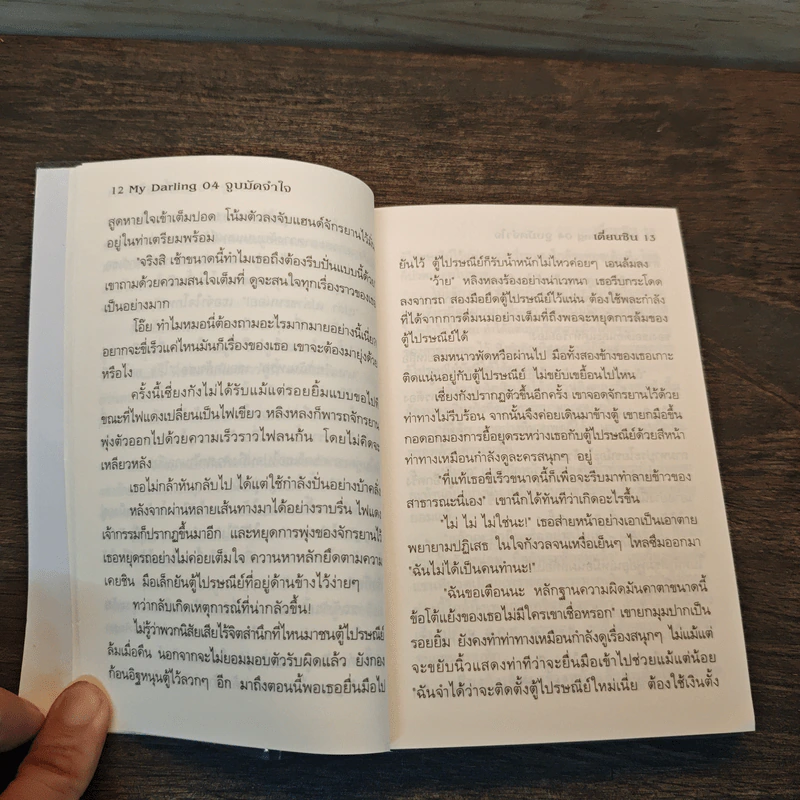 12 My Darling 04 จูบมัดจำใจ
สูดหายใจเข้าเต็มปอด โน้มตัวลงจับแฮนด์จักรยานไว้
อยู่ในท่าเตรียมพร้อม
"จริงสิ เช้าขนาดนี้ทำไมเธอถึงต้องรีบปั่นแบบนี้ด้วย
เขาถามด้วยความสนใจเต็มที่ ดูจะสนใจทุกเรื่องราวของเธอ
เป็นอย่างมาก
โอ๊ย ทำไมหมอนี่ต้องถามอะไรมากมายอย่างนี้เนี่ย
อยากจะขี่เร็วแค่ไหนมันก็เรื่องของเธอ เขาจะต้องมายุ่งด้วย
หรือไง
ครั้งนี้เซี่ยงกังไม่ได้รับแม้แต่รอยยิ้มแบบขอไปที
ขณะที่ไฟแดงเปลี่ยนเป็นไฟเขียว หลิงหลงก็พารถจักรยาน
พุ่งตัวออกไปด้วยความเร็วราวไฟลนก้น โดยไม่คิดจะ
เหลียวหลัง
เธอไม่กล้าหันกลับไป ได้แต่ใช้กำลังปั่นอย่างบ้าคลั่ง
หลังจากผ่านหลายเส้นทางมาได้อย่างราบรื่น ไฟแดง
เจ้ากรรมก็ปรากฏขึ้นมาอีก และหยุดการพุ่งของจักรยานไว้
เธอหยุดรถอย่างไม่ค่อยเต็มใจ ควานหาหลักยึดตามความ
เคยชิน มือเล็กยันตู้ไปรษณีย์ที่อยู่ด้านข้างไว้ง่ายๆ
ทว่ากลับเกิดเหตุการณ์ที่น่ากลัวขึ้น!
ไม่รู้ว่าพวกนิสัยเสียไร้จิตสำนึกที่ไหนมาชนตู้ไปรษณีย์
ล้มเมื่อคืน นอกจากจะไม่ยอมมอบตัวรับผิดแล้ว ยังกอง
ก้อนอิฐหนุนตู้ไว้ลวกๆ อีก มาถึงตอนนี้พอเธอยื่นมือไป
เตี่ยนซิน 13
ยันไว้ ตู้ไปรษณีย์ก็รับน้ำหนักไม่ไหวค่อยๆ เอนล้มลง
"ว้าย" หลิงหลงร้องอย่างน่าเวทนา เธอรีบกระโดด
ลงจากรถ สองมือยึดตู้ไปรษณีย์ไว้แน่น ต้องใช้พละกำลัง
ที่ได้จากการดื่มนมอย่างเต็มที่ถึงพอจะหยุดการล้มของ
ตู้ไปรษณีย์ได้
ลมหนาวพัดหวือผ่านไป มือทั้งสองข้างของเธอเกาะ
ติดแน่นอยู่กับตู้ไปรษณีย์ ไม่ขยับเขยื้อนไปไหน
เซี่ยงกังปรากฏตัวขึ้นอีกครั้ง เขาจอดจักรยานไว้ด้วย
ท่าทางไม่รีบร้อน จากนั้นจึงค่อยเดินมาข้างตู้ เขายกมือขึ้น
กอดอกมองการยื้อยุดระหว่างเธอกับตู้ไปรษณีย์ด้วยสีหน้า
ท่าทางเหมือนกำลังดูละครสนุกๆ อยู่
"ที่แท้เธอขี่เร็วขนาดนี้ก็เพื่อจะรีบมาทำลายข้าวของ
สาธารณะนี่เอง" เขานึกได้ทันทีว่าเกิดอะไรขึ้น
"ไม่ ไม่ ไม่ใช่นะ!" เธอส่ายหน้าอย่างเอาเป็นเอาตาย
พยายามปฏิเสธ ในใจกังวลจนเหงื่อเย็นๆ ไหลซึมออกมา
"ฉันไม่ได้เป็นคนทำนะ!"
"ฉันขอเตือนนะ หลักฐานความผิดมันคาตาขนาดนี้
ข้อโต้แย้งของเธอไม่มีใครเขาเชื่อหรอก" เขายกมุมปากเป็น
รอยยิ้ม ยังคงทำท่าทางเหมือนกำลังดูเรื่องสนุกๆ ไม่แม้แต่
จะขยับนิ้วแสดงท่าทีว่าจะยื่นมือเข้าไปช่วยแม้แต่น้อย
"ฉันจำได้ว่าจะติดตั้งตู้ไปรษณีย์ใหม่เนี่ย ต้องใช้เงินตั้ง